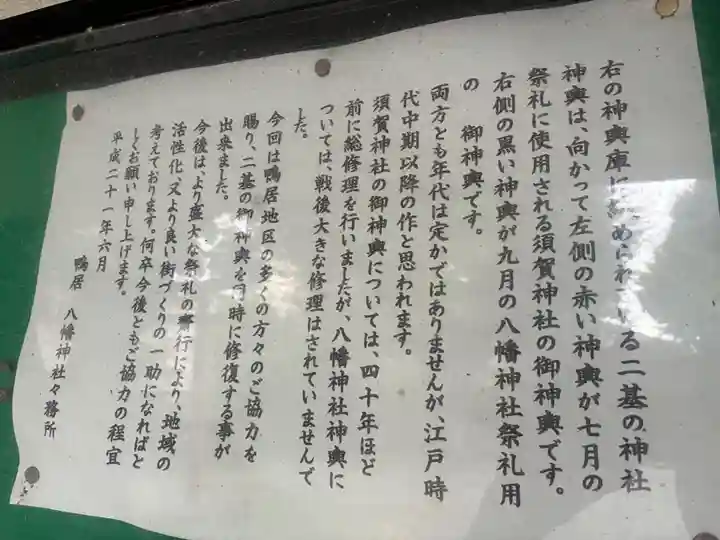 右の神輿庫に納められている二基の神社
神輿は、向かって左側の赤い神輿が七月の
祭礼に使用される須賀神社の御神輿です。
右側の黒い神輿が九月の八幡神社祭礼用
の 御神輿です。
両方とも年代は定かではありませんが、江戸時
代中期以降の作と思われます。
須賀神社の御神輿については、四十年ほど
前に総修理を行いましたが、八幡神社神輿に
ついては、戦後大きな修理はされていませんで
した。
今回は鴨居地区の多くの方々のご協力を
賜り、二基の御神輿を同時に修復する事が
出来ました。
今後は、より盛大な祭礼の齋行により、地域の
活性化、又より良い街づくりの一助になればと
考えております。何卒今後ともご協力の程宜
しくお願い申し上げます。
平成二十一年六月
鴨居 八幡神社々務所